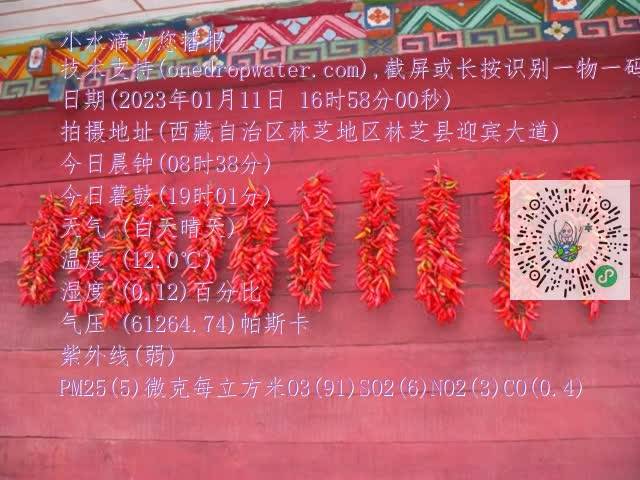 小水滴为您播报
技术支持(onedropwater.com),截屏或长按识别一物一码
日期(2023年01月11日 16时58分00秒)
拍摄地址(西藏自治区林芝地区林芝县迎宾大道)
今日晨钟(08时38分)
今日暮鼓(19时01分)
天气 (白天晴天)
温度 (12.0℃)
湿度 (0.12)百分比
气压 (61264.74)帕斯卡
紫外线(弱)
PM25(5)微克每立方米O3(91)SO2(6)NO2(3)CO(0.4)